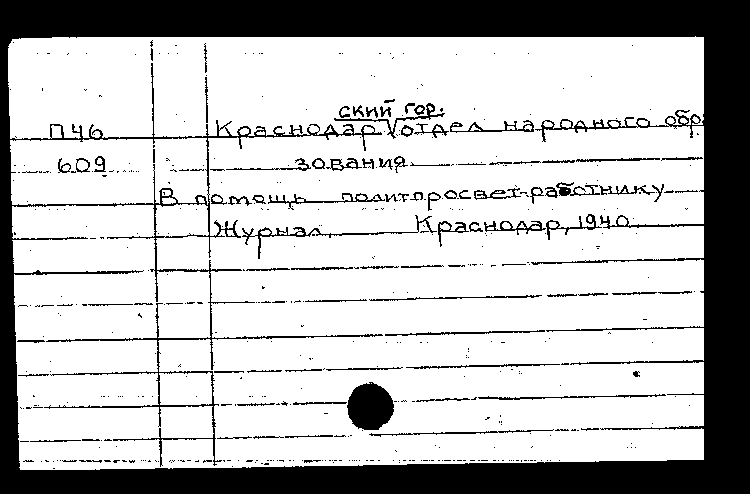 ский гор.
П46 Краснодар √ отдел народного обра
609 зования.
В помощь политпросвет-работнику
Журнал. Краснодар, 1940.